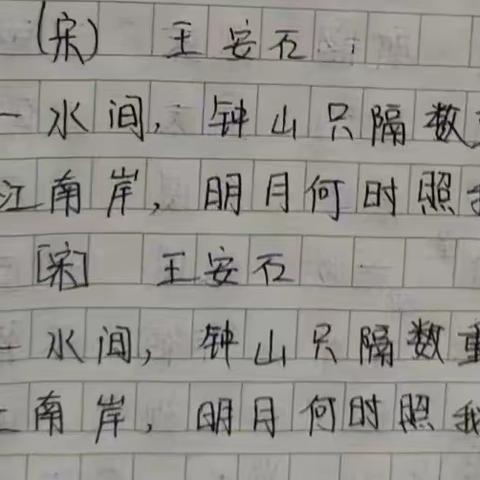 (宋) 王安石
一水间,钟山只隔数
江南岸,明月何时照
[宋] 王安石
一水间,钟山只隔数重
江南岸,明月何时照我